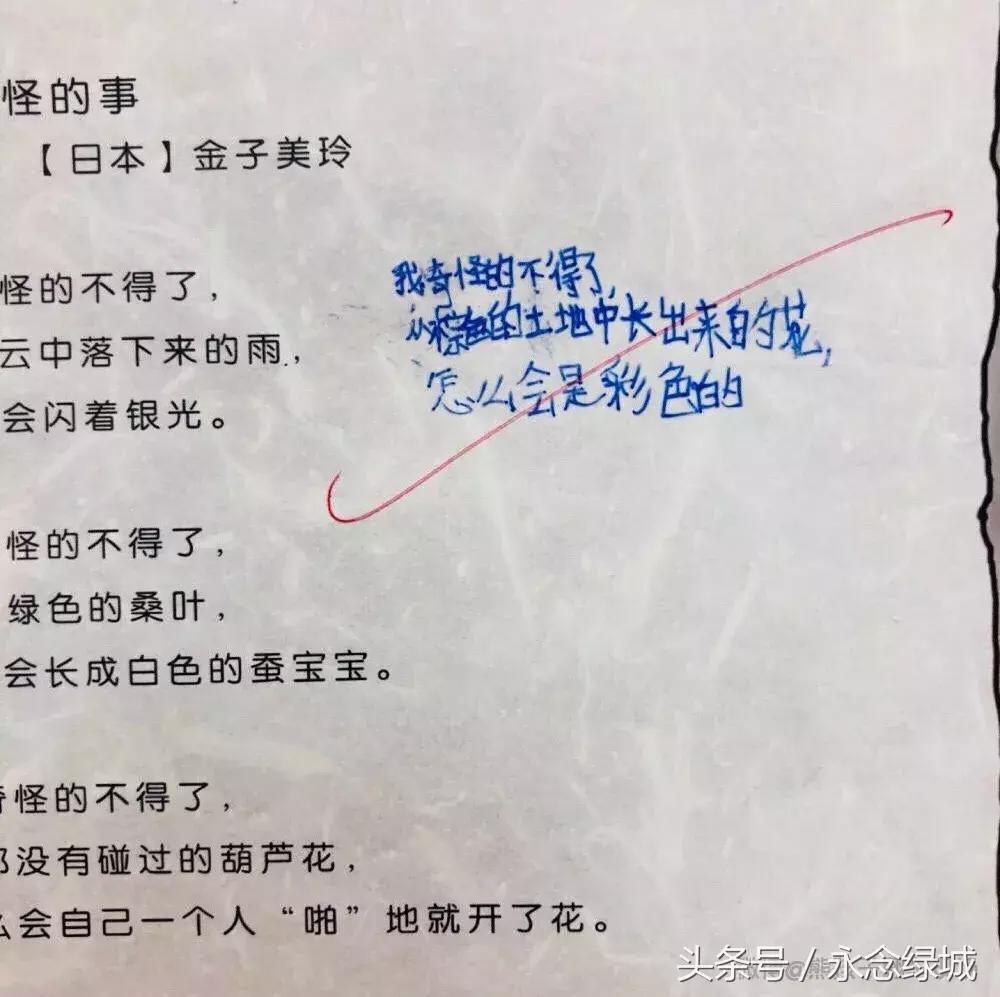 怪的事
【日本】金子美玲
怪的不得了，
云中落下来的雨，
会闪着银光。
我奇怪的不得了，
从棕色的土地中长出来的花，
怎么会是彩色的
怪的不得了，
绿色的桑叶，
会长成白色的蚕宝宝。
奇怪的不得了，
都没有碰过的葫芦花，
么会自己一个人“啪”地就开了花。
头条号／永念绿城